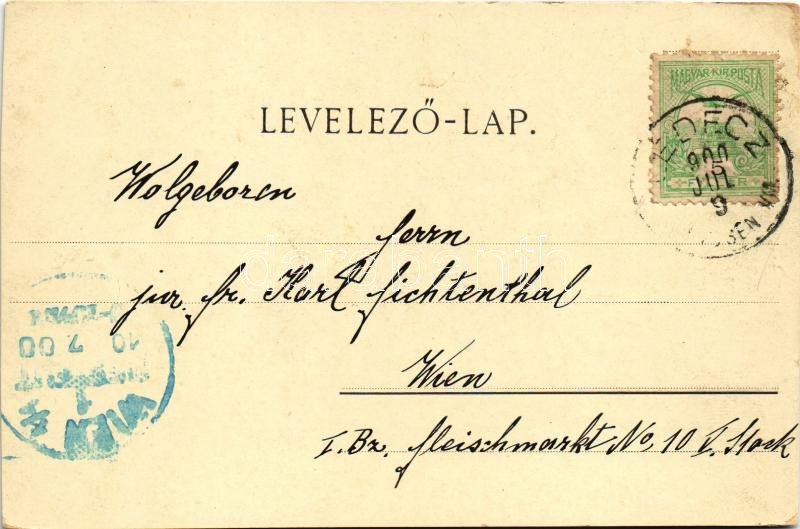 LEVELEZŐ-LAP.
MAGYAR KIR. POSTA
900
JUL
9
Wolgeboren
Herrn
jur. Dr. Karl Lichtenthal
Wien
I. Bz. Fleischmarkt No 10 I. Stock
WIEN
1
10 7 00